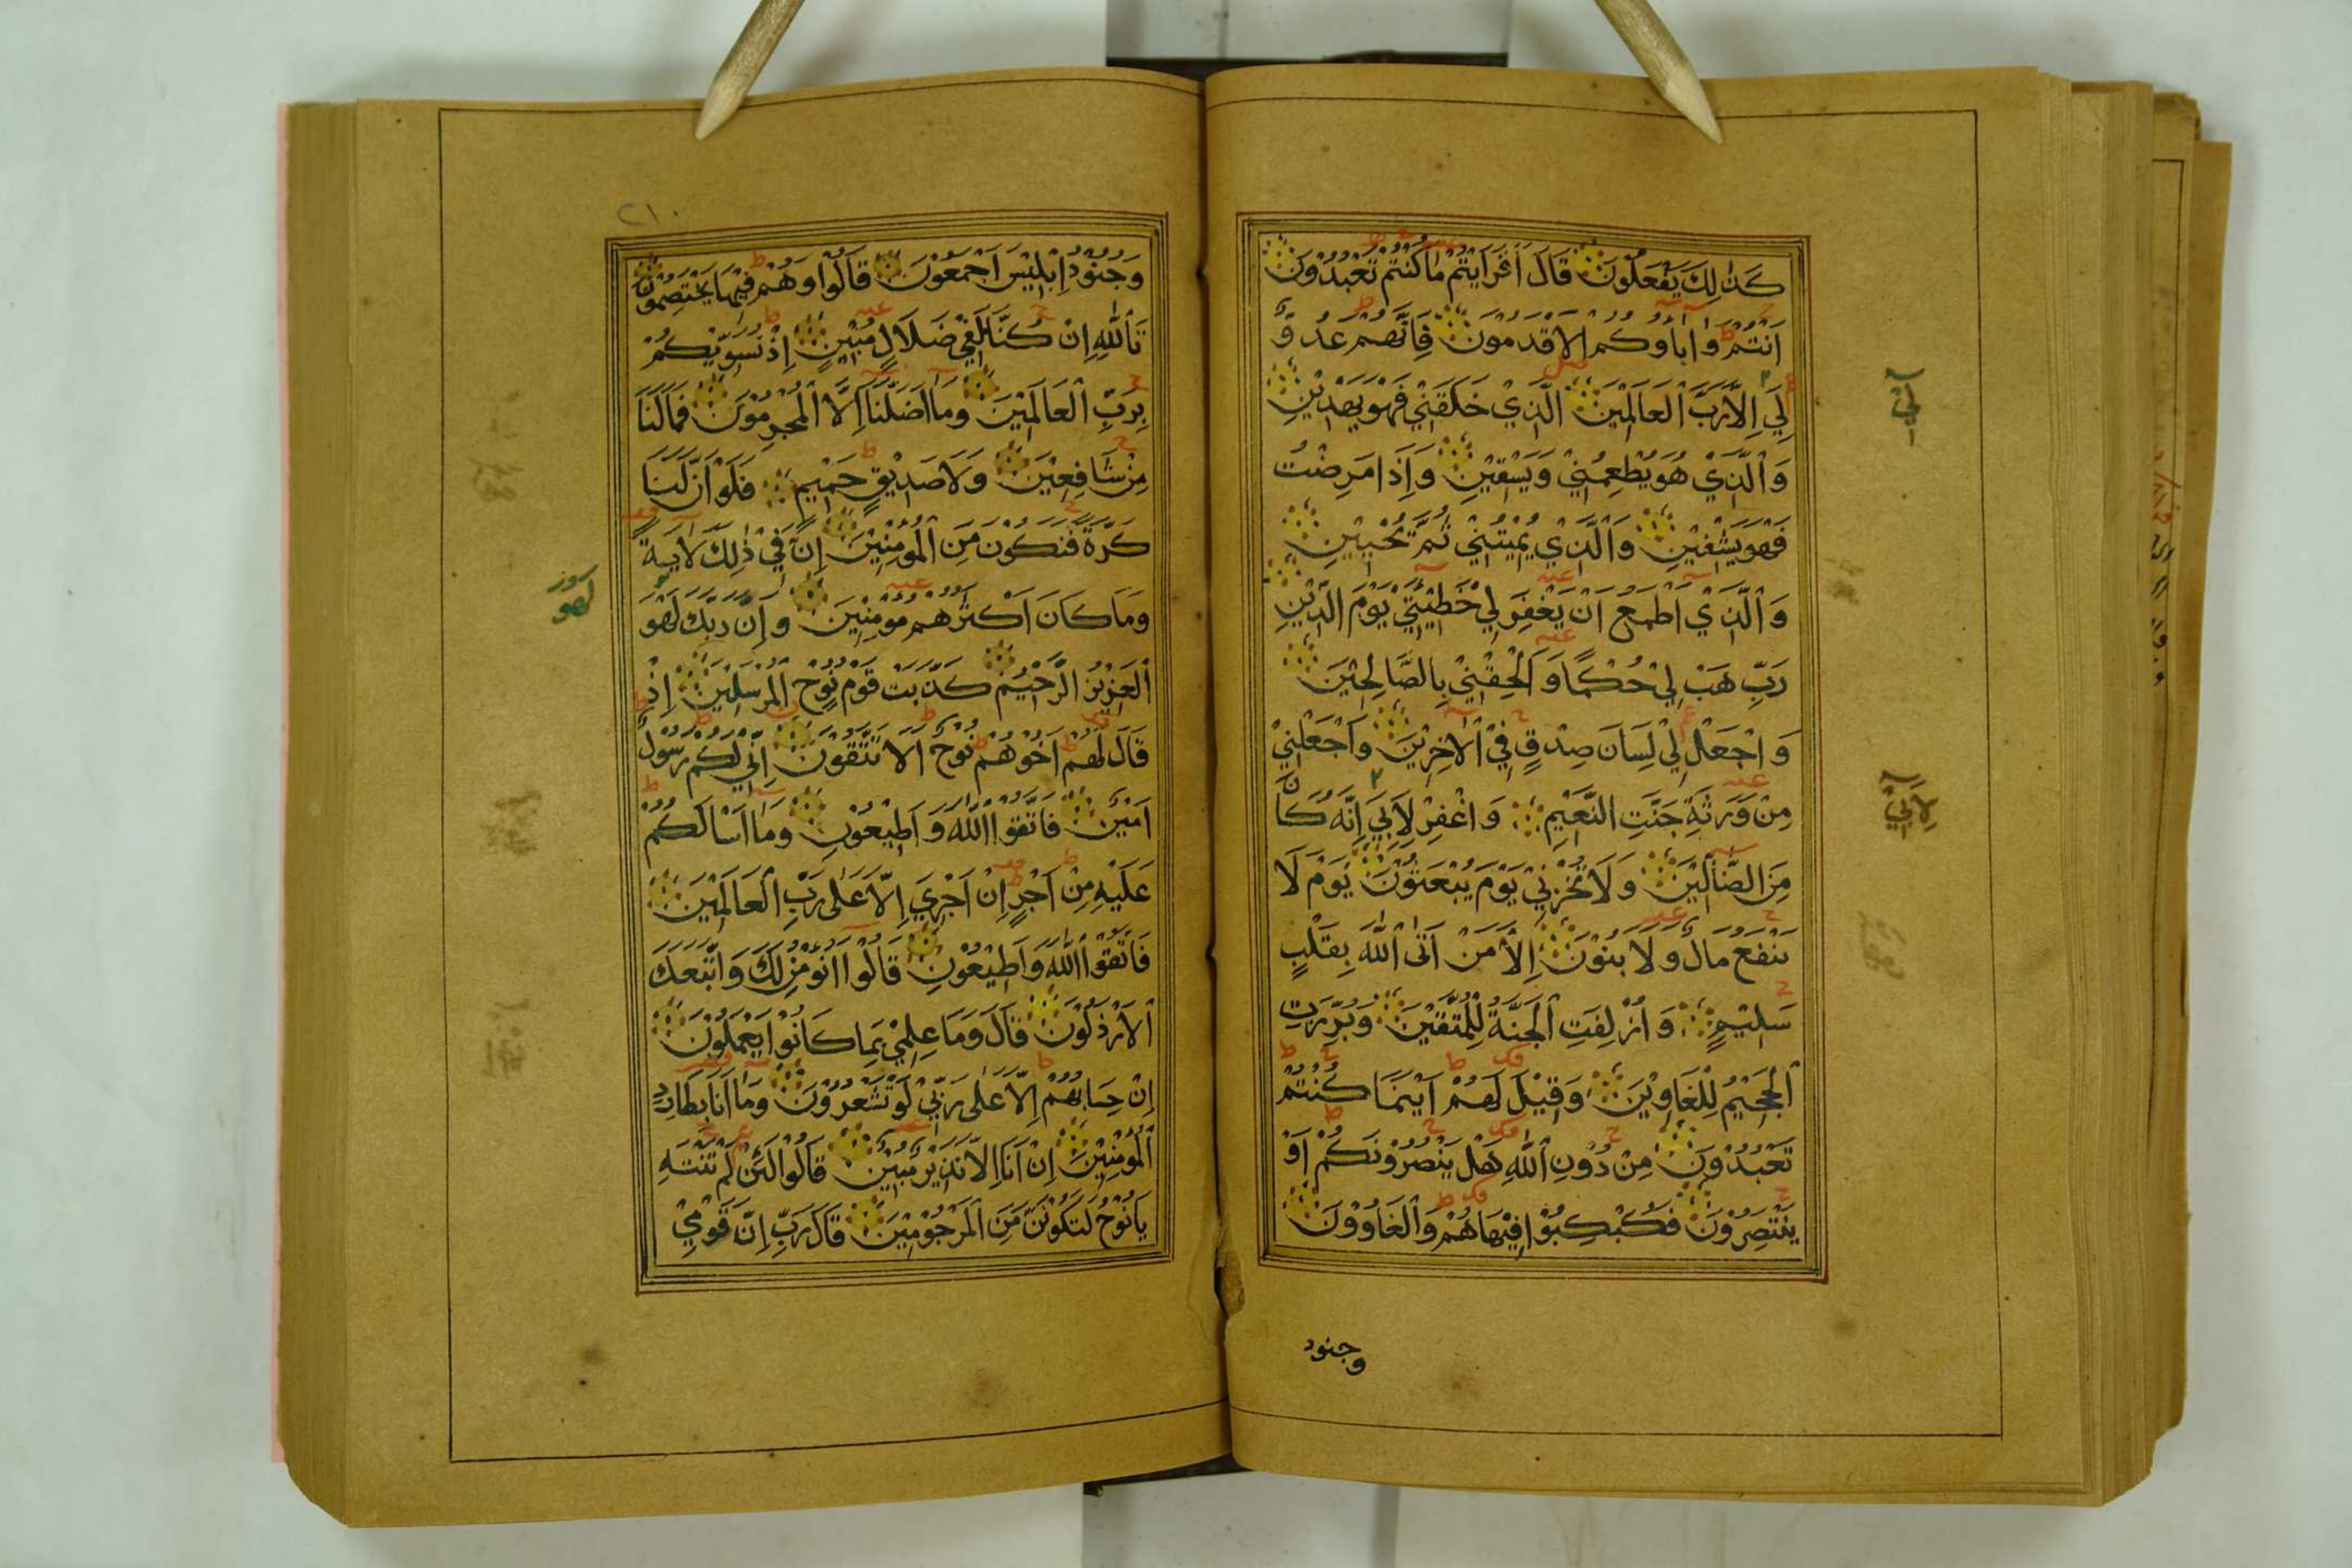 كَذٰلِكَ يَفْعَلُوْنَ قَالَ أَفَرَأَيْتُمْ مَا كُنْتُمْ تَعْبُدُوْنَ
اَنْتُمْ وَاٰبَاؤُكُمُ الْاَقْدَمُوْنَ فَاِنَّهُمْ عَدُوٌّ
لِي اِلَّا رَبَّ الْعَالَمِيْنَ الَّذِي خَلَقَنِي فَهُوَ يَهْدِيْنِ
وَالَّذِيْ هُوَ يُطْعِمُنِيْ وَيَسْقِيْنِ وَاِذَا مَرِضْتُ
فَهُوَ يَشْفِيْنِ وَالَّذِي يُمِيْتُنِيْ ثُمَّ يُحْيِيْنِ
وَالَّذِيْ اَطْمَعُ اَنْ يَغْفِرَ لِيْ خَطِيْئَتِيْ يَوْمَ الدِّيْنِ
رَبِّ هَبْ لِيْ حُكْمًا وَاَلْحِقْنِيْ بِالصَّالِحِيْنَ
وَاجْعَلْ لِيْ لِسَانَ صِدْقٍ فِيْ الْاٰخِرِيْنَ وَاجْعَلْنِيْ
مِنْ وَرَثَةِ جَنَّتِ النَّعِيْمِ وَاغْفِرْ لِاَبِي اِنَّهُ كَانَ
مِنَ الضَّالِّيْنَ وَلَا تُخْزِنِيْ يَوْمَ يُبْعَثُوْنَ يَوْمَ لَا
يَنْفَعُ مَالٌ وَلَا بَنُوْنَ اِلَّا مَنْ اَتَى اللّٰهَ بِقَلْبٍ
سَلِيْمٍ وَاُزْلِفَتِ الْجَنَّةُ لِلْمُتَّقِيْنَ وَبُرِّزَتِ
الْجَحِيْمُ لِلْغَاوِيْنَ وَقِيْلَ لَهُمْ اَيْنَمَا كُنْتُمْ
تَعْبُدُوْنَ مِنْ دُوْنِ اللّٰهِ هَلْ يَنْصُرُوْنَكُمْ اَوْ
يَنْتَصِرُوْنَ فَكُبْكِبُوْا فِيْهَا هُمْ وَالْغَاوُوْنَ
وجنود
لِيْ
لِاَبِيْ
٢١٠
وَجُنُوْدُ اِبْلِيْسَ اَجْمَعُوْنَ قَالُوْا وَهُمْ فِيْهَا يَخْتَصِمُوْنَ
تَاللّٰهِ اِنْ كُنَّا لَفِيْ ضَلَالٍ مُبِيْنٍ اِذْ نُسَوِّيْكُمْ
بِرَبِّ الْعَالَمِيْنَ وَمَا اَضَلَّنَا اِلَّا الْمُجْرِمُوْنَ فَمَا لَنَا
مِنْ شَافِعِيْنَ وَلَا صَدِيْقٍ حَمِيْمٍ فَلَوْ اَنَّ لَنَا
كَرَّةً فَنَكُوْنَ مِنَ الْمُؤْمِنِيْنَ اِنَّ فِيْ ذٰلِكَ لَاٰيَةً
وَمَا كَانَ اَكْثَرُهُمْ مُؤْمِنِيْنَ وَاِنَّ رَبَّكَ لَهُوَ
الْعَزِيْزُ الرَّحِيْمُ كَذَّبَتْ قَوْمُ نُوْحٍ الْمُرْسَلِيْنَ اِذْ
قَالَ لَهُمْ اَخُوْهُمْ نُوْحٌ اَلَا تَتَّقُوْنَ اِنِّيْ لَكُمْ رَسُوْلٌ
اَمِيْنٌ فَاتَّقُوا اللّٰهَ وَاَطِيْعُوْنِ وَمَا اَسْاَلُكُمْ
عَلَيْهِ مِنْ اَجْرٍ اِنْ اَجْرِيَ اِلَّا عَلٰى رَبِّ الْعَالَمِيْنَ
فَاتَّقُوا اللّٰهَ وَاَطِيْعُوْنِ قَالُوْا اَنُؤْمِنُ لَكَ وَاتَّبَعَكَ
الْاَرْذَلُوْنَ قَالَ وَمَا عِلْمِيْ بِمَا كَانُوْا يَعْمَلُوْنَ
اِنْ حِسَابُهُمْ اِلَّا عَلٰى رَبِّيْ لَوْ تَشْعُرُوْنَ وَمَا اَنَا بِطَارِدِ
الْمُؤْمِنِيْنَ اِنْ اَنَا اِلَّا نَذِيْرٌ مُبِيْنٌ قَالُوْا لَئِنْ لَمْ تَنْتَهِ
يَا نُوْحُ لَتَكُوْنَنَّ مِنَ الْمَرْجُوْمِيْنَ قَالَ رَبِّ اِنَّ قَوْمِيْ
لهو